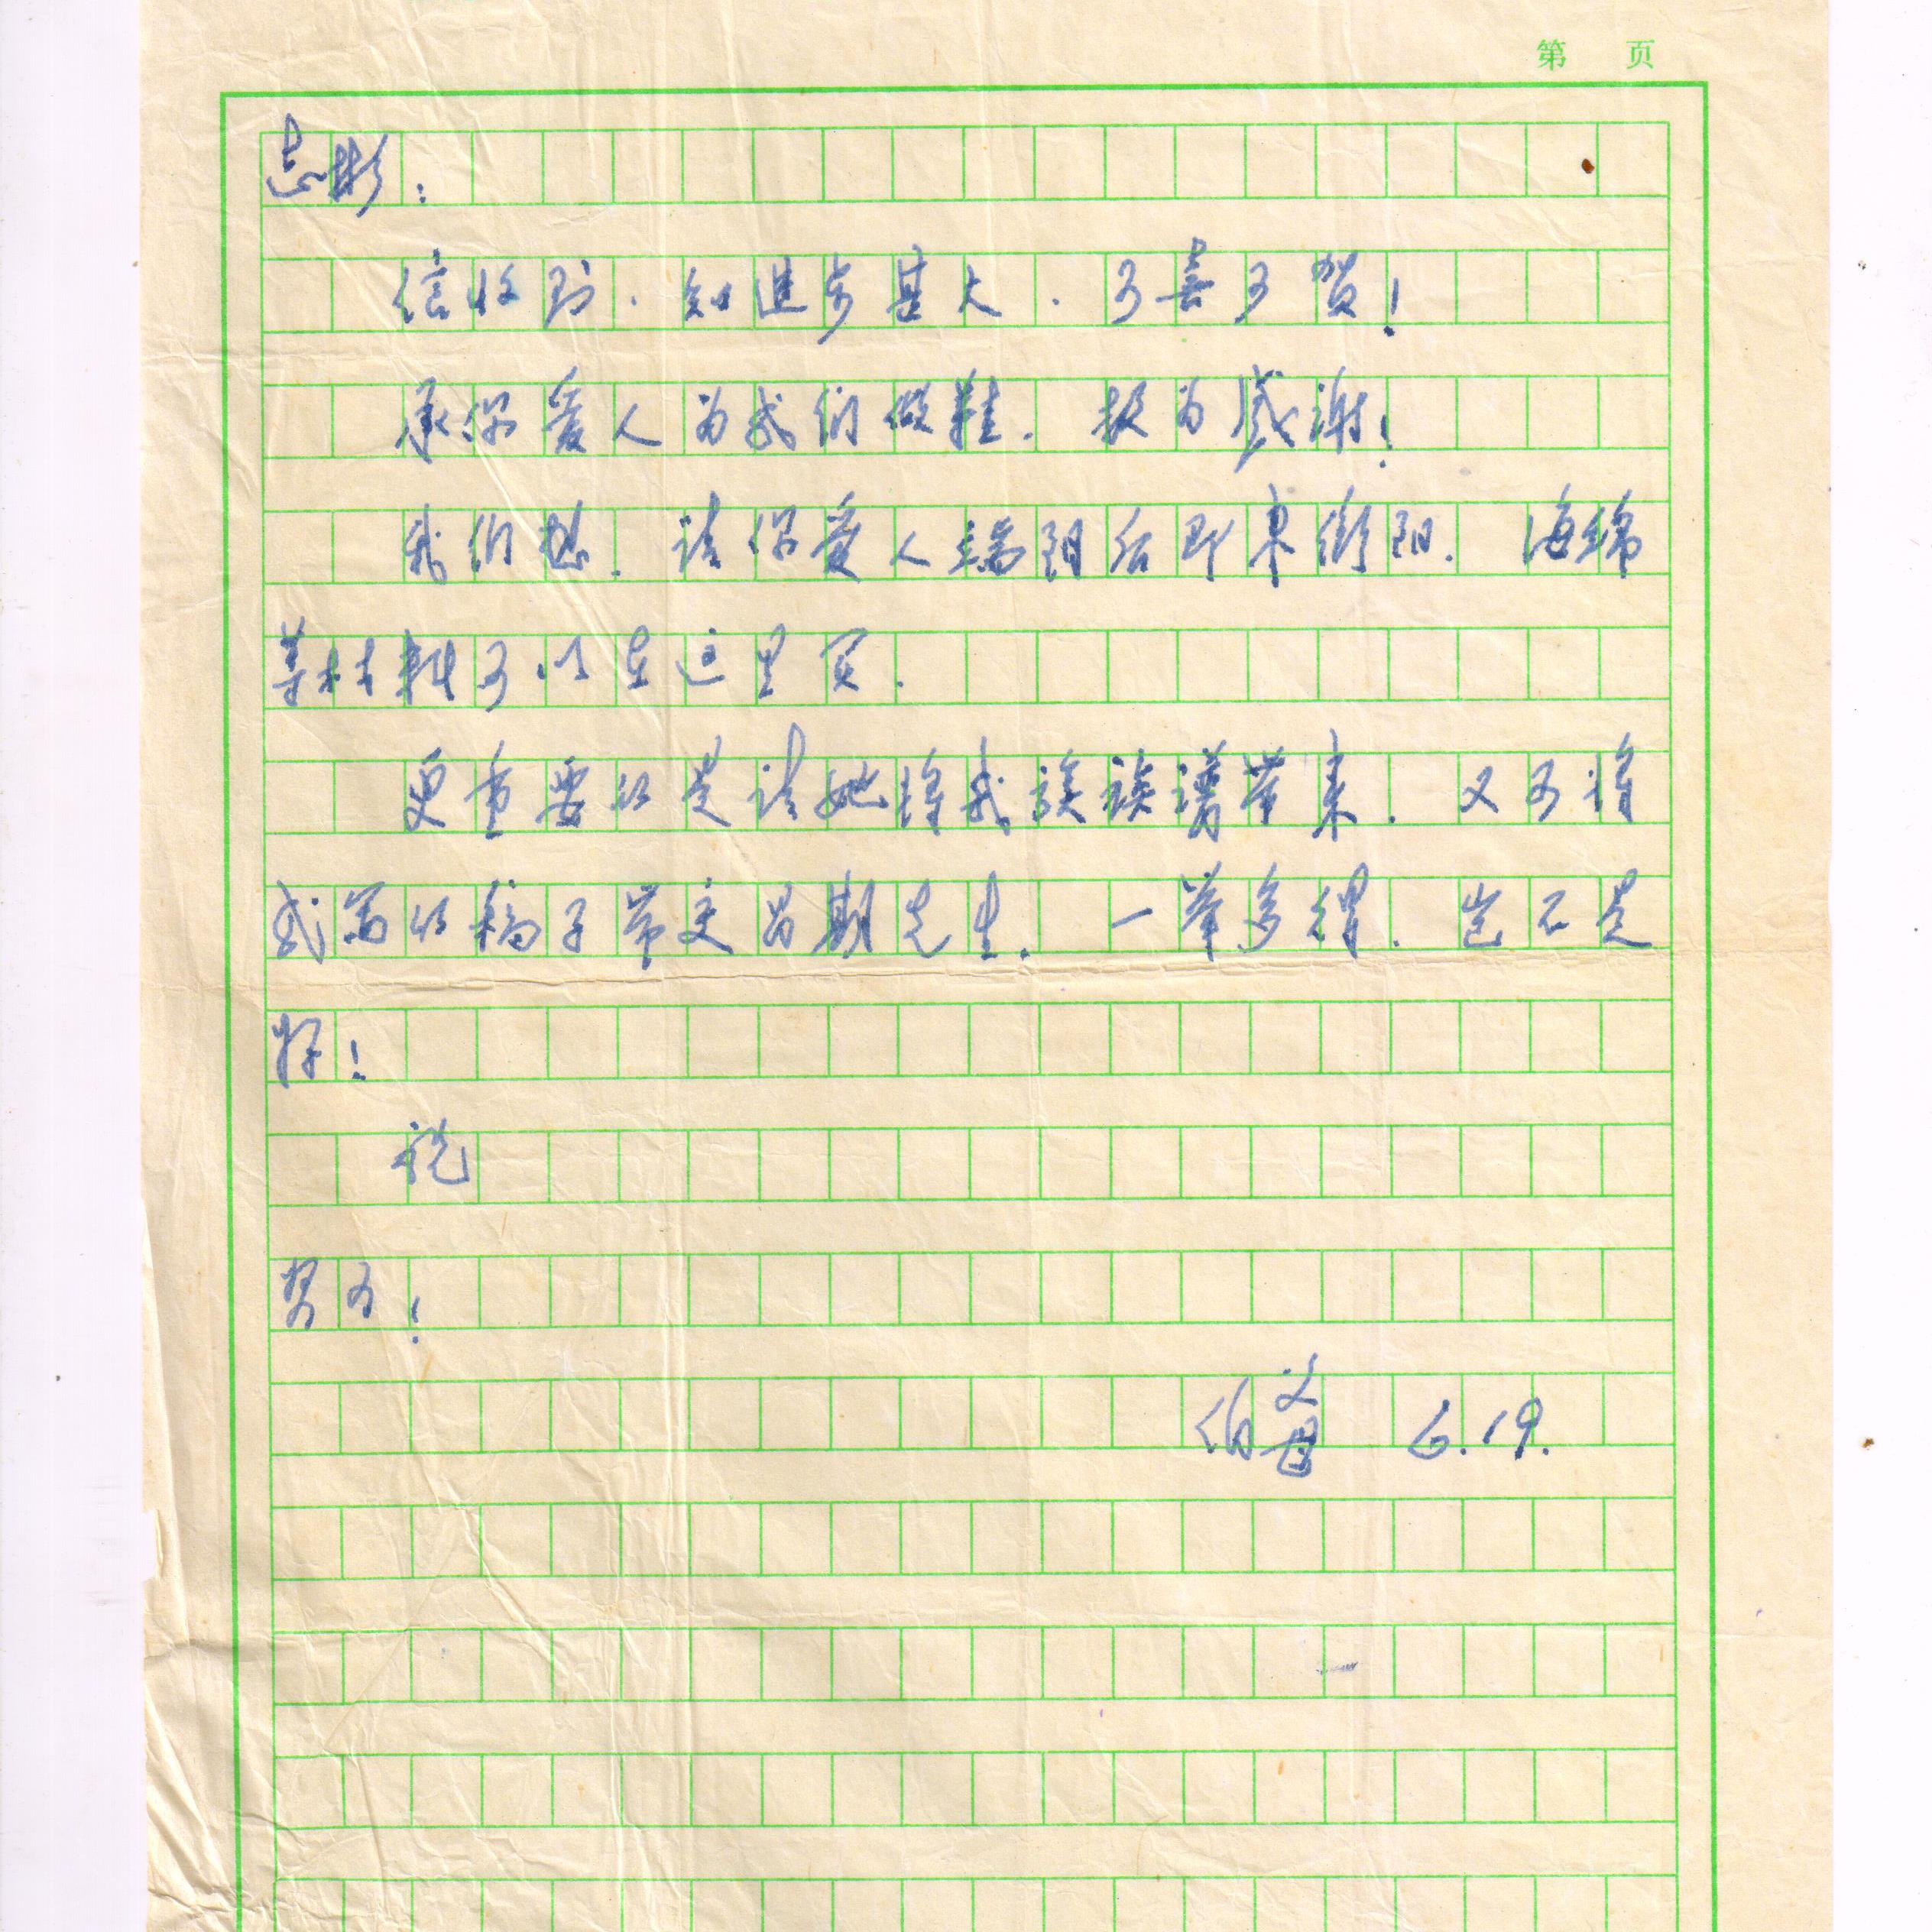 第 页
志彬：
信收到．知进步甚大．可喜可贺！
承你爱人为我们做鞋．极为感谢！
我们想．请你爱人端阳后即来衡阳．海绵
等材料可以在这里买．
更重要的是请她将我族族谱带来．又可将
我写的稿子带交昌期先生．一举多得．岂不是
好！
祝
努力！
伯父母 6.19.